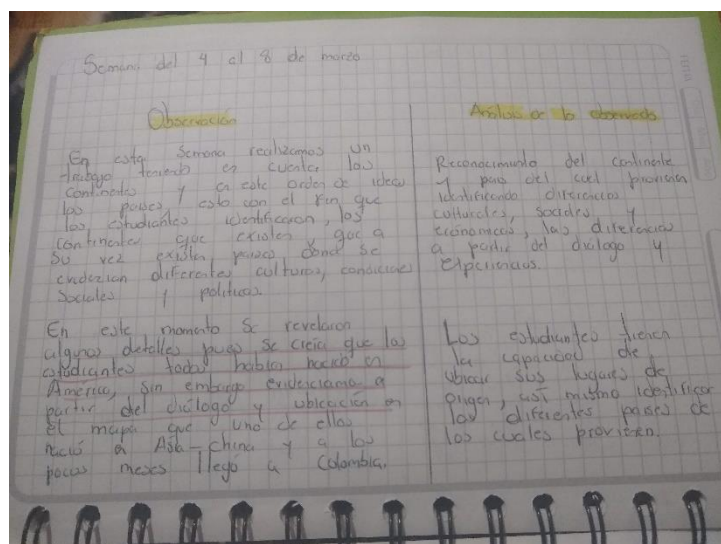 Semana del 4 al 8 de marzo
Observación
En esta Semana realizamos un
trabajo teniendo en cuenta los
continentes y a este orden de ideas
los paises, esto con el fin que
los estudiantes identificaran, los
continentes que existen que a
su vez existen paises donde se
evidencian diferentes culturas, condiciones
Sociales y politicas.
En este momento Se revelaron
algunos detalles pues se creia que los
estudiantes todos habian nacido en
América, sin embargo evidenciamos a
partir del diálogo y ubicación en
el mapa que uno de ellos
nació en Asia-China y a los
pocos meses llegó a Colombia.
Análisis de lo observado
Reconocimiento del continente
y pais del cual provienen
identificando diferencias
culturales, sociales y
económicas, las diferencias
a partir del diálogo y
experiencias.
Los estudiantes tienen
la capacidad de
ubicar sus lugares de
origen, así mismo identificar
los diferentes paises de
los cuales provienen.